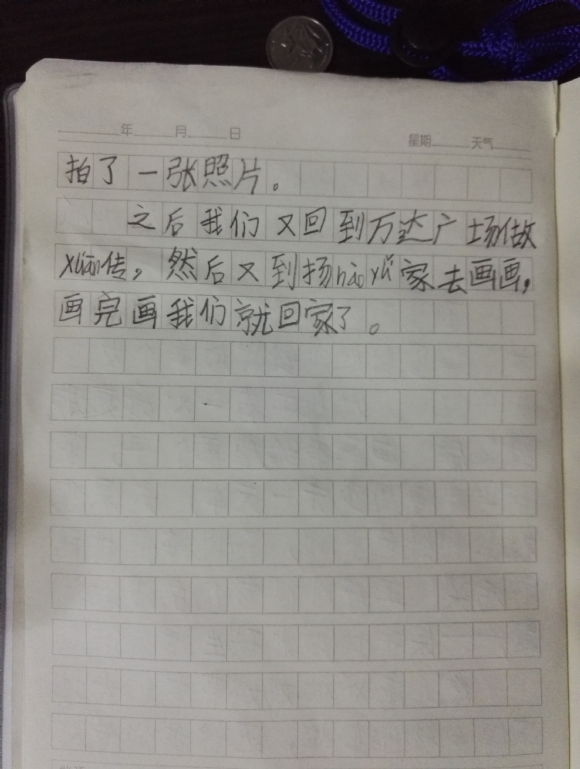 年 月 日 星期 天气
拍了一张照片。
之后我们又回到万达广场做
xuān传，然后又到扬hào yǔ家去画画，
画完画我们就回家了。